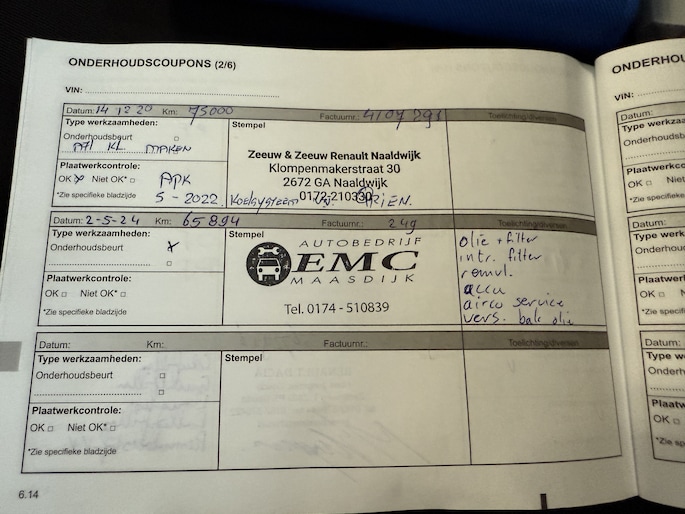 ONDERHOUDSCOUPONS (2/6)
VIN:
Datum: 14 12 20 Km: 75000 Factuurnr.: Toelichting/diversen
Type werkzaamheden:
Onderhoudsbeurt
KL MAKEN
Stempel
Zeeuw & Zeeuw Renault Naaldwijk
Klompenmakerstraat 30
2672 GA Naaldwijk
0172-210330
Plaatwerkcontrole:
OK Niet OK*
APK
*Zie specifieke bladzijde
5-2022. Koelsysteem
Datum: 2-5-24 Km: 65894 Factuurnr.: 249 Toelichting/diversen
Type werkzaamheden:
Onderhoudsbeurt x
Plaatwerkcontrole:
OK Niet OK*
*Zie specifieke bladzijde
Stempel
AUTOBEDRIJF
EMC
MAASDIJK
Tel. 0174 - 510839
olie + filter
intr. filter
remvl.
accu
airco service
vers. bak olie
Datum: Km: Factuurnr.: Toelichting/diversen
Type werkzaamheden:
Onderhoudsbeurt
Plaatwerkcontrole:
OK Niet OK*
*Zie specifieke bladzijde
Stempel
6.14
ONDERHOU
VIN:
Datum:
Type werkza
Onderhoudsb
Plaatwerkco
OK Niet
*Zie specifieke
Datum:
Type werkz
Onderhoud
Plaatwerk
OK N
*Zie specifie
Datum:
Type w
Onderh
Plaatw
OK
*Zie spe